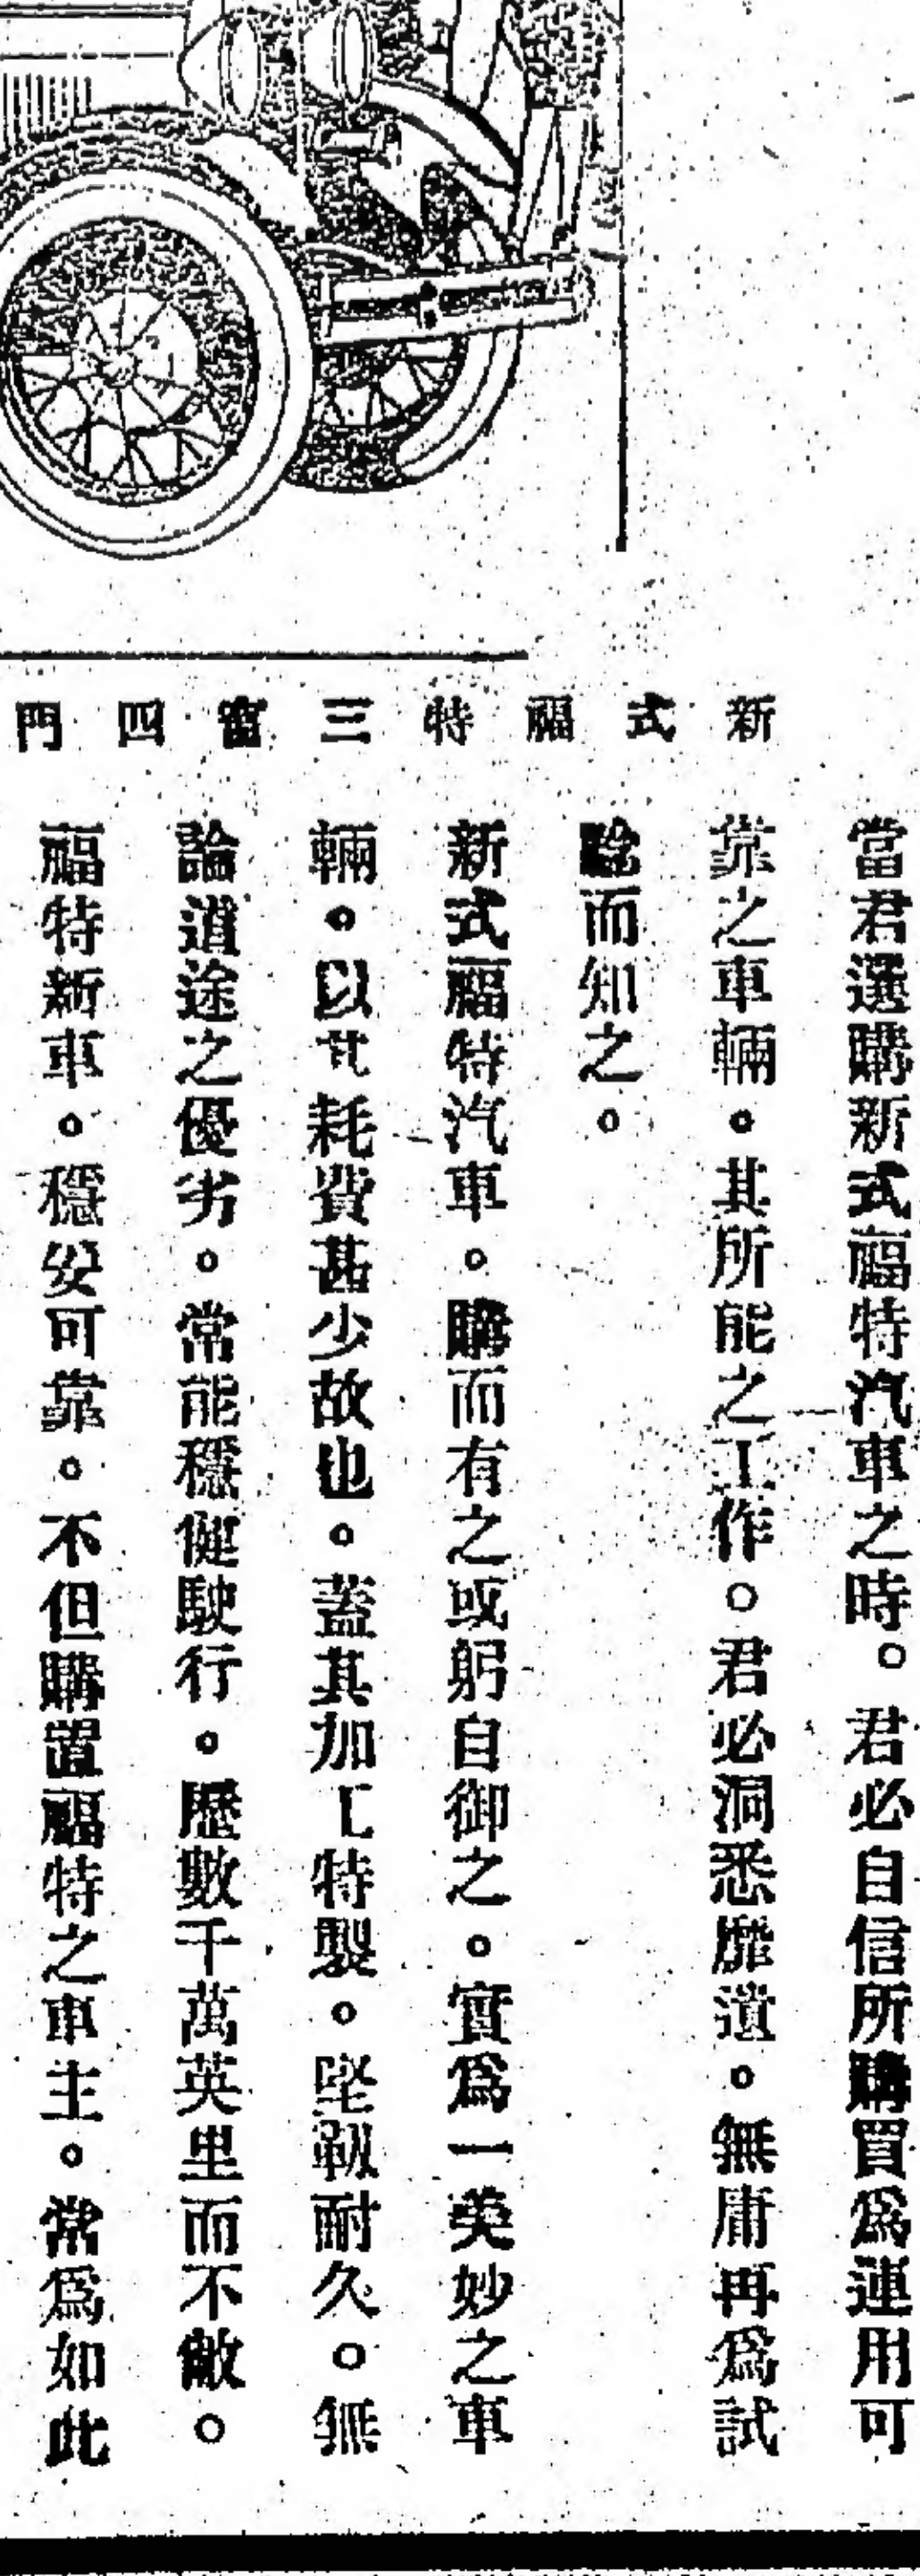 新式福特三窗四門
當君選購新式福特汽車之時。君必自信所購買爲運用可
靠之車輛。其所能之工作。君必洞悉靡遺。無庸再爲試
驗而知之。
新式福特汽車。購而有之或躬自御之。實爲一美妙之車
輛。以其耗費甚少故也。蓋其加工特製。堅韌耐久。無
論道途之優劣。常能穩健駛行。歷數千萬英里而不敝。
福特新車。穩妥可靠。不但購置福特之車主。常爲如此